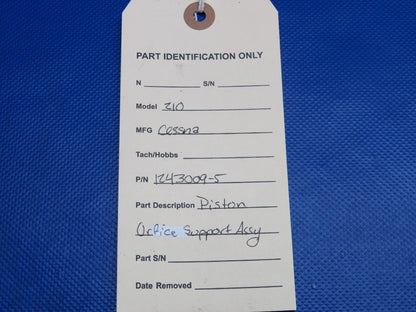 PART IDENTIFICATION ONLY
N S/N
Model 210
MFG Cessna
Tach/Hobbs
P/N 1243009-5
Part Description Piston
Orfice Support Assy
Part S/N
Date Removed